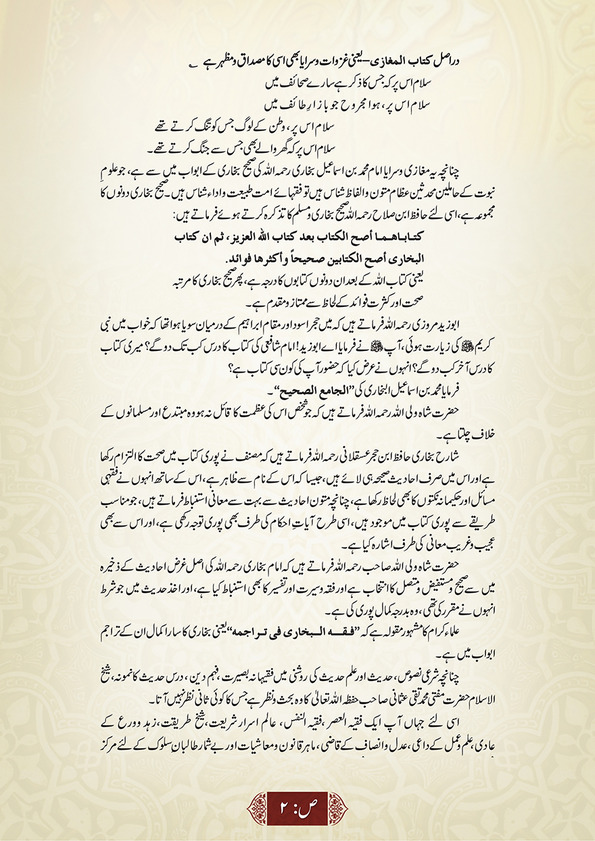 دراصل کتاب المغازی – یعنی غزوات و سرایا بھی اسی کا مصداق و مظہر ہے ؎
سلام اس پر کہ جس کا ذکر ہے سارے صحائف میں
سلام اس پر، ہوا مجروح جو بازارِ طائف میں
سلام اس پر، وطن کے لوگ جس کو تنگ کرتے تھے
سلام اس پر کہ گھر والے بھی جس سے جنگ کرتے تھے۔
چنانچہ یہ مغازی وسرایا امام محمد بن اسماعیل بخاری رحمہ اللہ کی صحیح بخاری کے ابواب میں سے ہے، جو علومِ
نبوت کے حاملین محدثین عظام متون والفاظ شناس ہیں تو فقہائے امت طبیعت واداء شناس ہیں۔ صحیح بخاری دونوں کا
مجموعہ ہے، اسی لئے حافظ ابن صلاح رحمہ اللہ صحیح بخاری ومسلم کا تذکرہ کرتے ہوئے فرماتے ہیں:
کتاباهما أصح الكتاب بعد كتاب الله العزيز، ثم ان كتاب
البخاری أصح الكتابين صحيحاً وأكثرها فوائد.
یعنی کتاب اللہ کے بعد ان دونوں کتابوں کا درجہ ہے، پھر صحیح بخاری کا مرتبہ
صحت اور کثرت فوائد کے لحاظ سے ممتاز ومقدم ہے۔
ابوزید مروزی رحمہ اللہ فرماتے ہیں کہ میں حجر اسود اور مقام ابراہیم کے درمیان سویا ہوا تھا کہ خواب میں نبی
کریم ﷺ کی زیارت ہوئی، آپ ﷺ نے فرمایا اے ابوزید! امام شافعی کی کتاب کا درس کب تک دو گے؟ میری کتاب
کا درس آخر کب دو گے؟ انہوں نے عرض کیا کہ حضور آپ کی کون سی کتاب ہے؟
فرمایا محمد بن اسماعیل البخاری کی ”الجامع الصحیح“۔
حضرت شاہ ولی اللہ رحمہ اللہ فرماتے ہیں کہ جو شخص اس کی عظمت کا قائل نہ ہو وہ مبتدع اور مسلمانوں کے
خلاف چلتا ہے۔
شارح بخاری حافظ ابن حجر عسقلانی رحمہ اللہ فرماتے ہیں کہ مصنف نے پوری کتاب میں صحت کا التزام رکھا
ہے اور اس میں صرف احادیث صحیحہ ہی لائے ہیں، جیسا کہ اس کے نام سے ظاہر ہے، اس کے ساتھ انہوں نے فقہی
مسائل اور حکیمانہ نکتوں کا بھی لحاظ رکھا ہے، چنانچہ متون احادیث سے بہت سے معانی استنباط فرماتے ہیں، جو مناسب
طریقے سے پوری کتاب میں موجود ہیں، اسی طرح آیاتِ احکام کی طرف بھی پوری توجہ رکھی ہے، اور اس سے بھی
عجیب وغریب معانی کی طرف اشارہ کیا ہے۔
حضرت شاہ ولی اللہ صاحب رحمہ اللہ فرماتے ہیں کہ امام بخاری رحمہ اللہ کی اصل غرض احادیث کے ذخیرہ
میں سے صحیح ومستفیض ومتصل کا انتخاب ہے اور فقہ وسیرت اور تفسیر کا بھی استنباط کیا ہے، اور اخذِ حدیث میں جو شرط
انہوں نے مقرر کی تھی، وہ بدرجہ کمال پوری کی ہے۔
علماء کرام کا مشہور مقولہ ہے کہ ”فقہ البخاری فی تراجمه“ یعنی بخاری کا سارا کمال ان کے تراجم
ابواب میں ہے۔
چنانچہ شرعی نصوص، حدیث اور علم حدیث کی روشنی میں فقیہانہ بصیرت، فہم دین، درس حدیث کا نمونہ، شیخ
الاسلام حضرت مفتی محمد تقی عثمانی صاحب حفظہ اللہ تعالیٰ کا وہ بحث ونظر ہے جس کا کوئی ثانی نظر نہیں آتا۔
اسی لئے جہاں آپ ایک فقیہ العصر، فقیہ النفس، عالم اسرار شریعت، شیخ طریقت، زہد وورع کے
عادی، علم وعمل کے داعی، عدل وانصاف کے قاضی، ماہر قانون ومعاشیات اور بے شمار طالبانِ سلوک کے لئے مرکز
ص: ۲